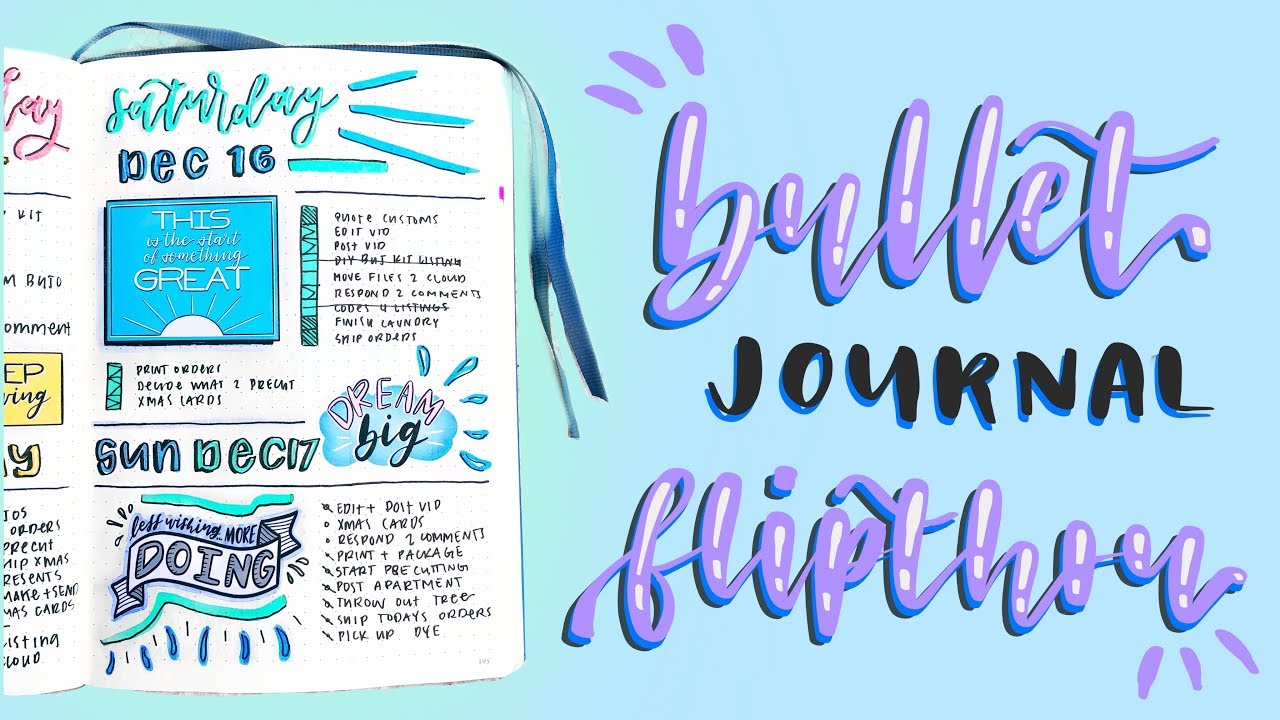 KIT
BUJO
comment
ORDERS
PRECUT
XMAS
MAKE + SEND
CARDS
CLOUD
saturday
DEC 16
THIS
is the start
of something
GREAT
QUOTE CUSTOMS
EDIT VID
POST VID
DIY BUJ KIT LISTING
MOVE FILES 2 CLOUD
RESPOND 2 COMMENTS
CODES 4 LISTINGS
FINISH LAUNDRY
SHIP ORDERS
PRINT ORDERS
DECIDE WHAT 2 PRECUT
XMAS CARDS
DREAM
big
SUN DEC 17
less wishing... MORE
DOING
EDIT + POST VID
XMAS CARDS
RESPOND 2 COMMENTS
PRINT + PACKAGE
START PRECUTTING
POST APARTMENT
THROW OUT TREE
SHIP TODAYS ORDERS
PICK UP DYE
195
bullet
JOURNAL
flipthru